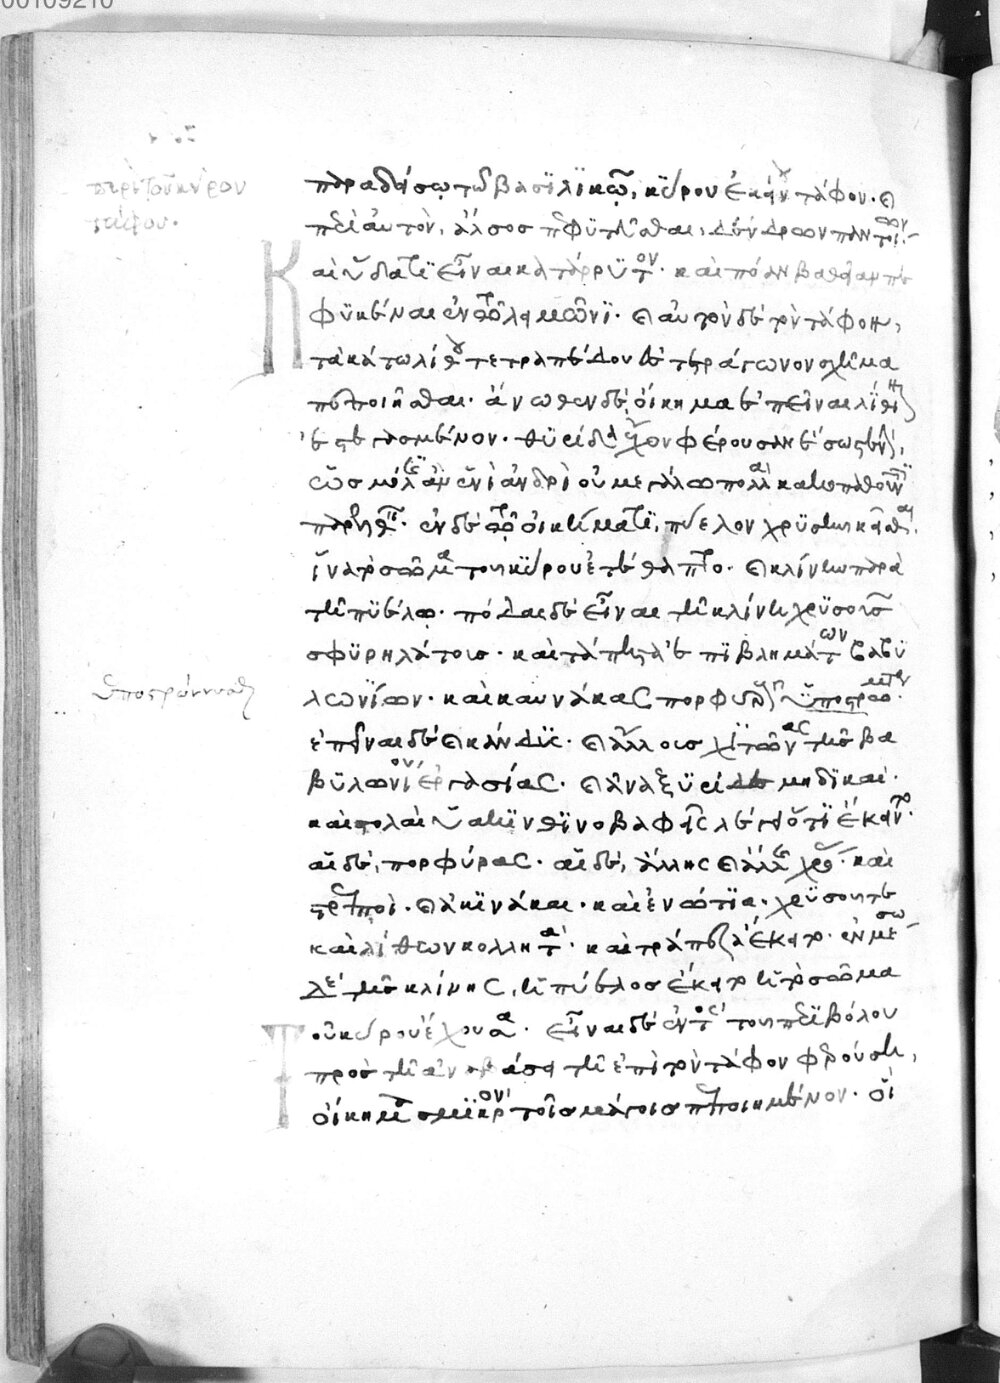 00109210
περὶ τοῦ κύρου
τάφου.
παραδείσῳ τῶ βασιλικῶ, κύρου ἐκείνου τάφον. καὶ
περὶ αὐτὸν, ἄλσος πεφυτεῦσθαι, δένδρων παντοίων.
Καὶ ὕδατι εἶναι κατάρρυτον. καὶ πόαν βαθεῖαν πε
φυκέναι ἐν τῶ λειμῶνι. καὶ αὐτὸν δὲ τὸν τάφον,
τὰ κάτω λίθου τετραπέδου ἐς τετράγωνον σχῆμα
πεποιῆσθαι. ἄνωθεν δὲ οἴκημα ἐπεῖναι λίθινον
ἐστεγασμένον. θυρίδα ἔχον φέρουσαν ἔσω στενὴν,
ὡς μόλις ἂν ἑνὶ ἀνδρὶ οὐ μεγάλω πολλὰ κακοπαθοῦντι
παρελθεῖν. ἐν δὲ τῶ οἰκήματι, πύελον χρυσῆν κεῖσθαι,
ἵνα τὸ σῶμα τοῦ κύρου ἐτέθαπτο. καὶ κλίνην παρὰ
τῆ πυέλω. πόδας δὲ εἶναι τῆ κλίνη χρυσοῦς
σφυρηλάτους. καὶ τάπητα ἐπιβλημάτων βαβυ
λωνίων. καὶ καυνάκας πορφυροῦς ὑποστρώματα.
ὑποστρώννυσθαι
ἐπεῖναι δὲ καὶ κάνδυς. καὶ ἄλλους χιτῶνας τῆς βα
βυλωνίου ἐργασίας. καὶ ἀναξυρίδες μηδικαὶ.
καὶ στολαὶ ὑακινθινοβαφεῖς λέγει ὅτι ἔκειντο.
αἱ δὲ, πορφύρας. αἱ δὲ, ἄλλης καὶ ἄλλης χρόας. καὶ
στρεπτοὶ. καὶ ἀκινάκαι. καὶ ἐνώτια. χρυσοῦ τε
καὶ λίθων κολλητὰ. καὶ τράπεζα ἔκειτο. ἐν μέσω
δὲ τῆς κλίνης, ἡ πύελος ἔκειτο ἡ τὸ σῶμα
Τοῦ κύρου ἔχουσα. εἶναι δὲ ἐντὸς τοῦ περιβόλου
πρὸς τῆ ἀναβάσει τῆ ἐπὶ τὸν τάφον φερούση,
οἴκημα σμικρὸν τοῖς μάγοις πεποιημένον. οἳ